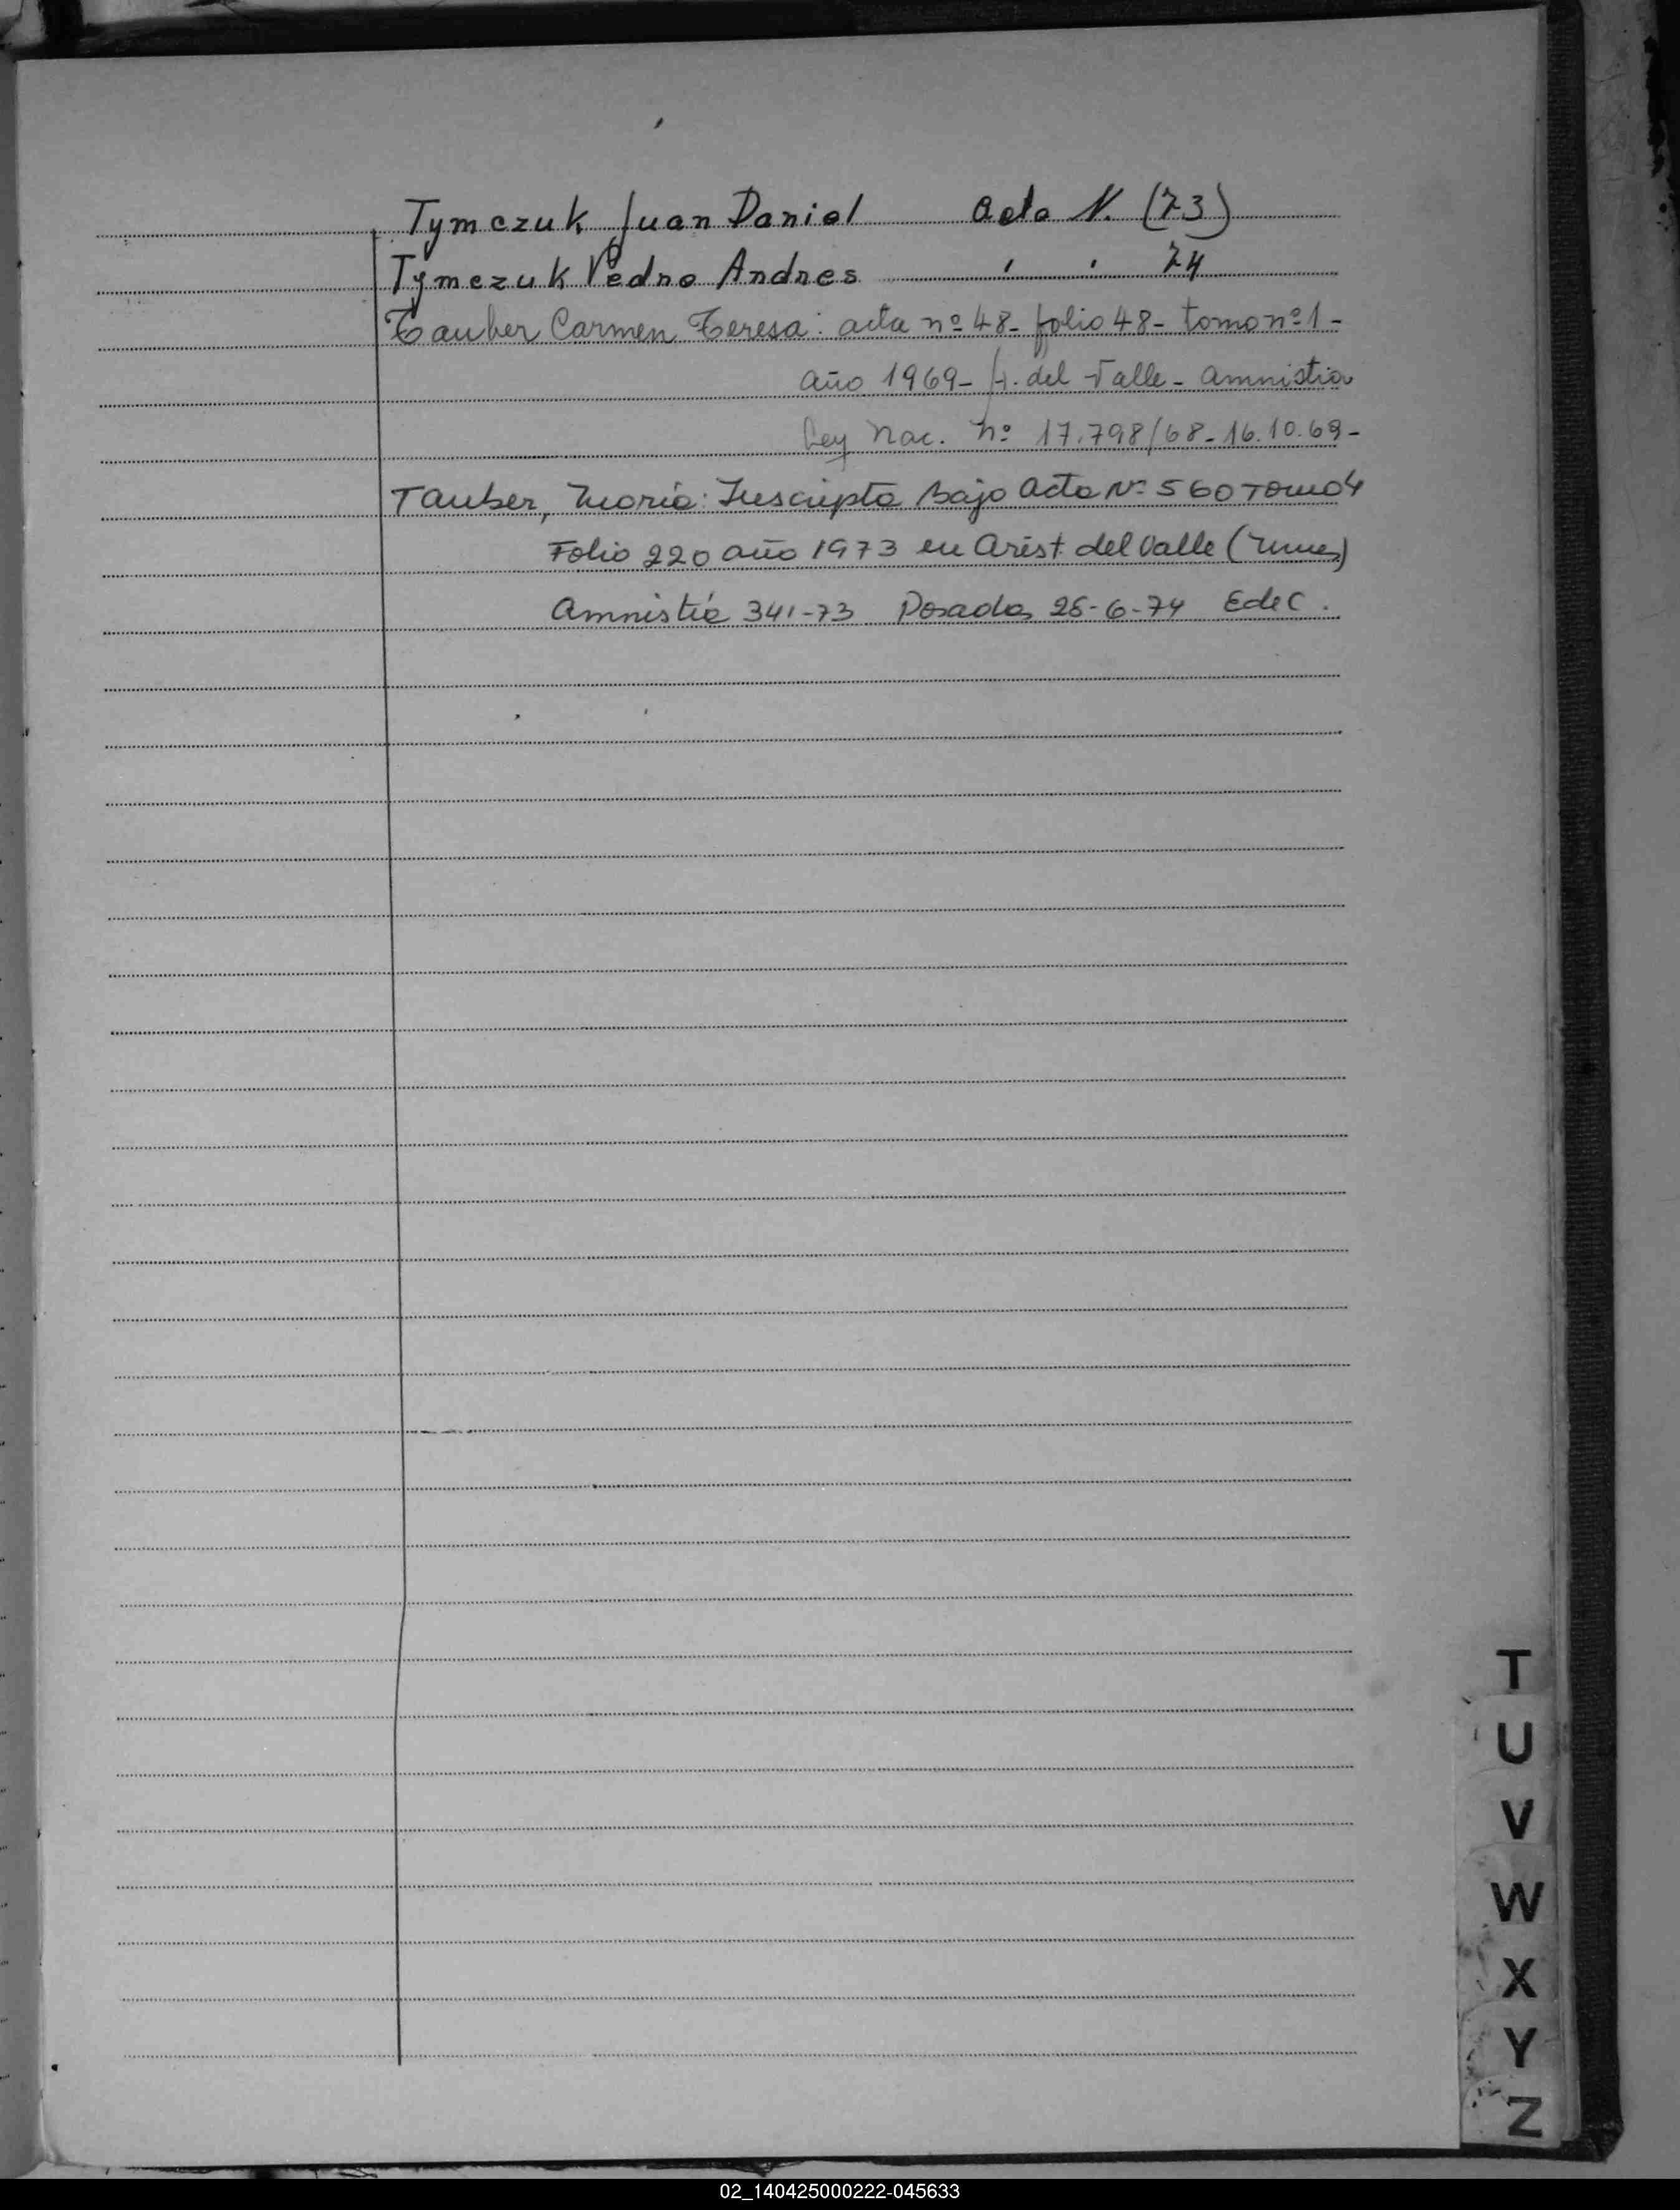 Tymczuk Juan Daniel acta N. (73)
Tymczuk Pedro Andres " " 74
Tauber Carmen Teresa: acta nº 48- folio 48- tomo nº 1-
año 1969- A. del Valle- amnistia
Ley Nac. nº 17.798/68-16.10.69-
Tauber, Maria: Inscripta Bajo Acta Nº 560 Tomo 4
Folio 220 año 1973 en Arist. del Valle
Amnistía 341-73 Posadas 26-6-74 EdeC.
T
U
V
W
X
Y
Z
02_140425000222-045633